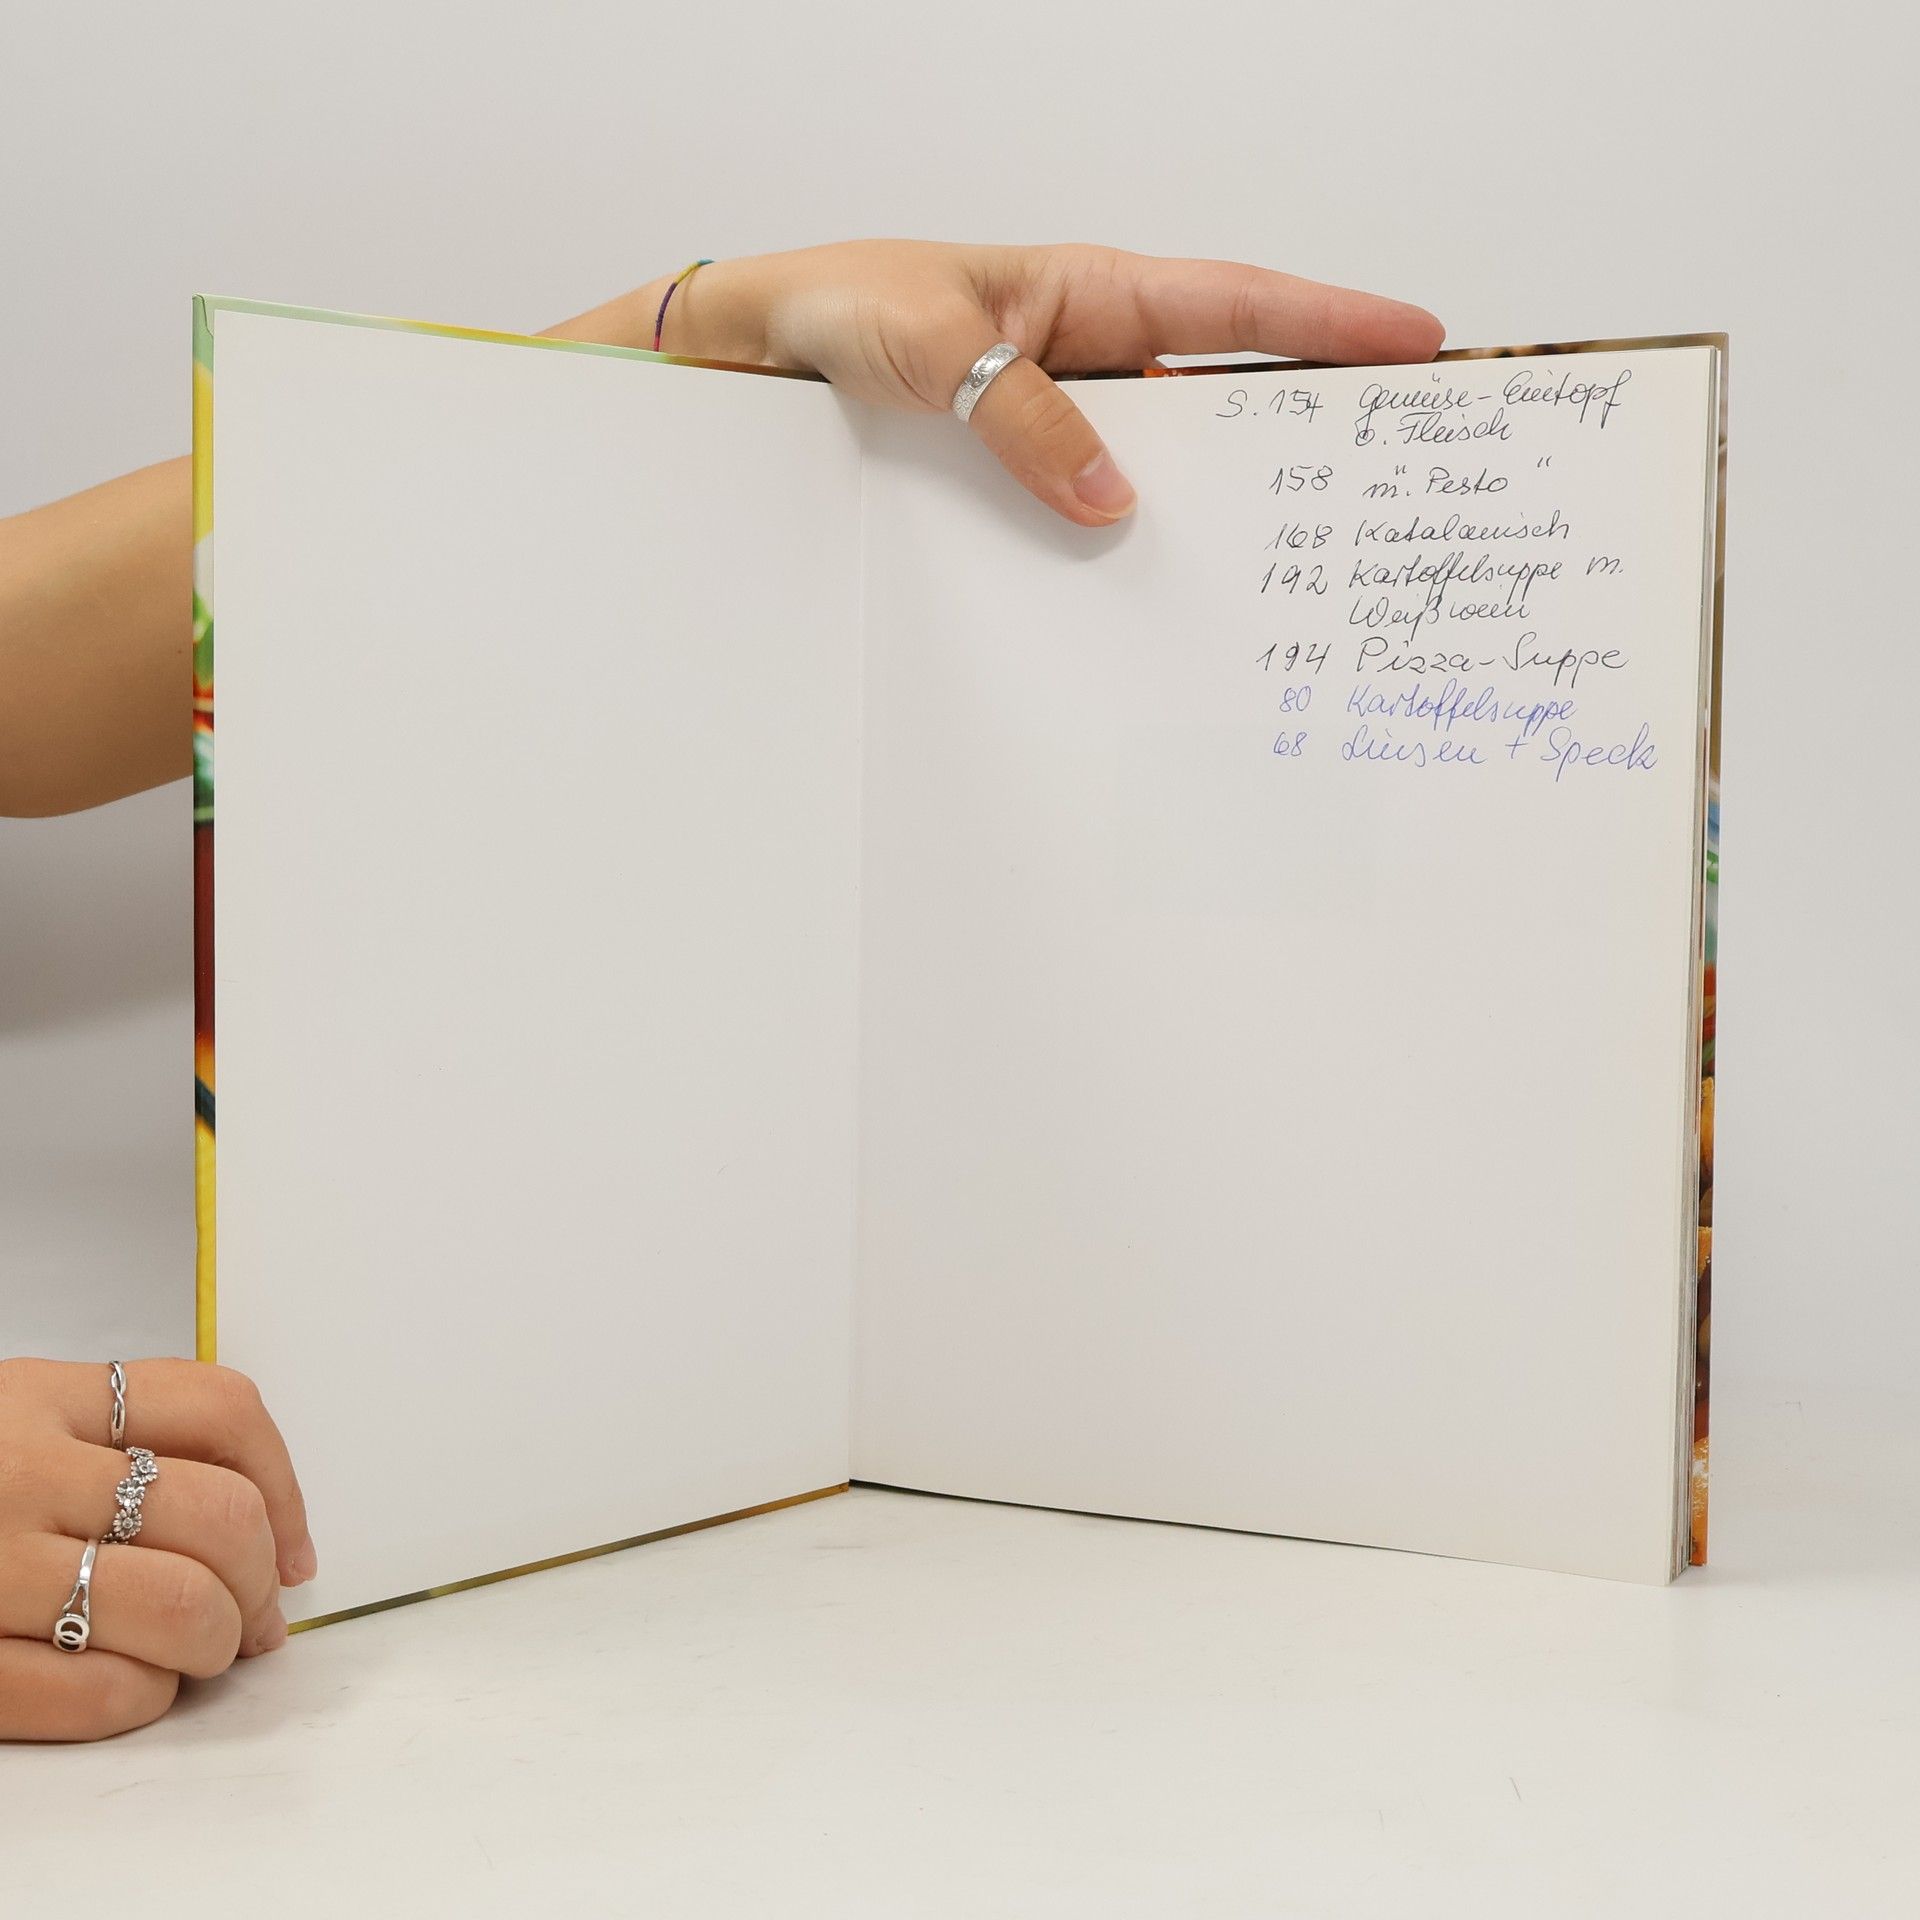 S. 154 Gemüse-Eintopf
o. Fleisch
158 " m. Pesto "
168 Katalanisch
192 Kartoffelsuppe m.
Weißwein
194 Pizza-Suppe
80 Kartoffelsuppe
68 Linsen + Speck